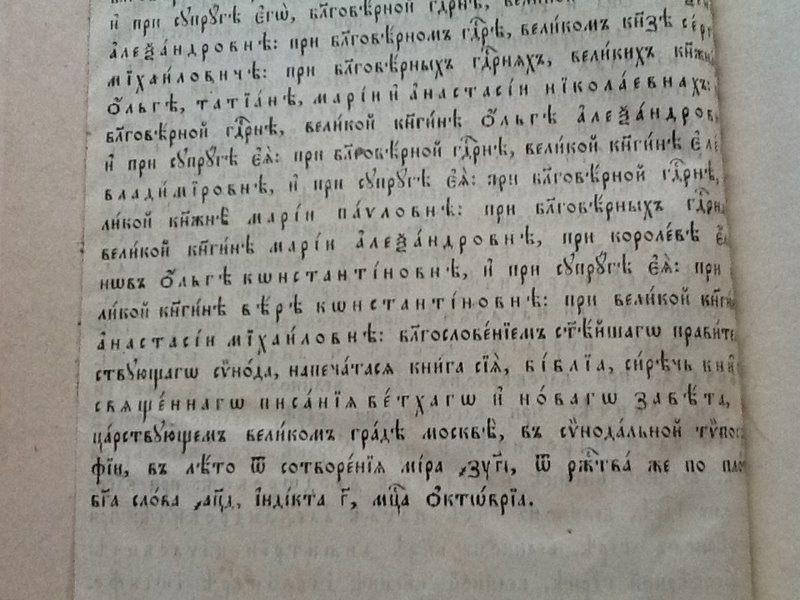 и҆ при сꙋпрꙋ́гѣ є҆гѡ̀, благовѣ́рной гд҇рнѣ,
а҆леѯа́ндровнѣ: при бл҃говѣ́рномъ гд҇рѣ, вели́комъ кн҃зѣ
мїха́иловичѣ: при бл҃говѣ́рныхъ гд҇рняхъ, вели́кихъ
ѻ҆́льгѣ, татїа́нѣ, марі́и и҆ а҆настасі́и нїкола́евнахъ:
бл҃говѣ́рной гд҇рнѣ, вели́кой кн҃ги́нѣ ѻ҆́льгѣ
и҆ при сꙋпрꙋ́гѣ є҆ѧ̀: при бл҃говѣ́рной гд҇рнѣ, вели́кой кн҃ги́нѣ
влади́мїровнѣ, и҆ при сꙋпрꙋ́гѣ є҆ѧ̀: при бл҃говѣ́рной гд҇рнѣ,
ли́кой кн҃жнѣ̀ марі́и па́ѵловнѣ: при бл҃говѣ́рныхъ
вели́кой кн҃ги́нѣ марі́и а҆леѯа́ндровнѣ, при короле́вѣ
нѡвъ ѻ҆́льгѣ кѡнстанті́новнѣ, и҆ при сꙋпрꙋ́гѣ є҆ѧ̀: при
ли́кой кн҃ги́нѣ вѣ́рѣ кѡнстанті́новнѣ: при вели́кой
а҆настасі́и мїха́иловнѣ: бл҃гослове́нїемъ ст҃ѣ́йшагѡ
ствꙋ́ющагѡ сѷно́да, напеча́тасѧ кни́га сїѧ̀, бі́блїа, си́рѣчь
свѧще́ннагѡ писа́нїѧ ве́тхагѡ и҆ но́вагѡ завѣ́та,
ца́рствꙋющемъ вели́комъ гра́дѣ москвѣ̀, въ сѷнода́льной
фі́и, въ лѣ́то ѿ сотворе́нїѧ мі́ра ҂зУг҃і, ѿ рж҇тва́ же по
бг҃а сло́ва ҂ац҃д, і҆нді́кта г҃, мц҇а ѻ҆ктѡ́врїа.